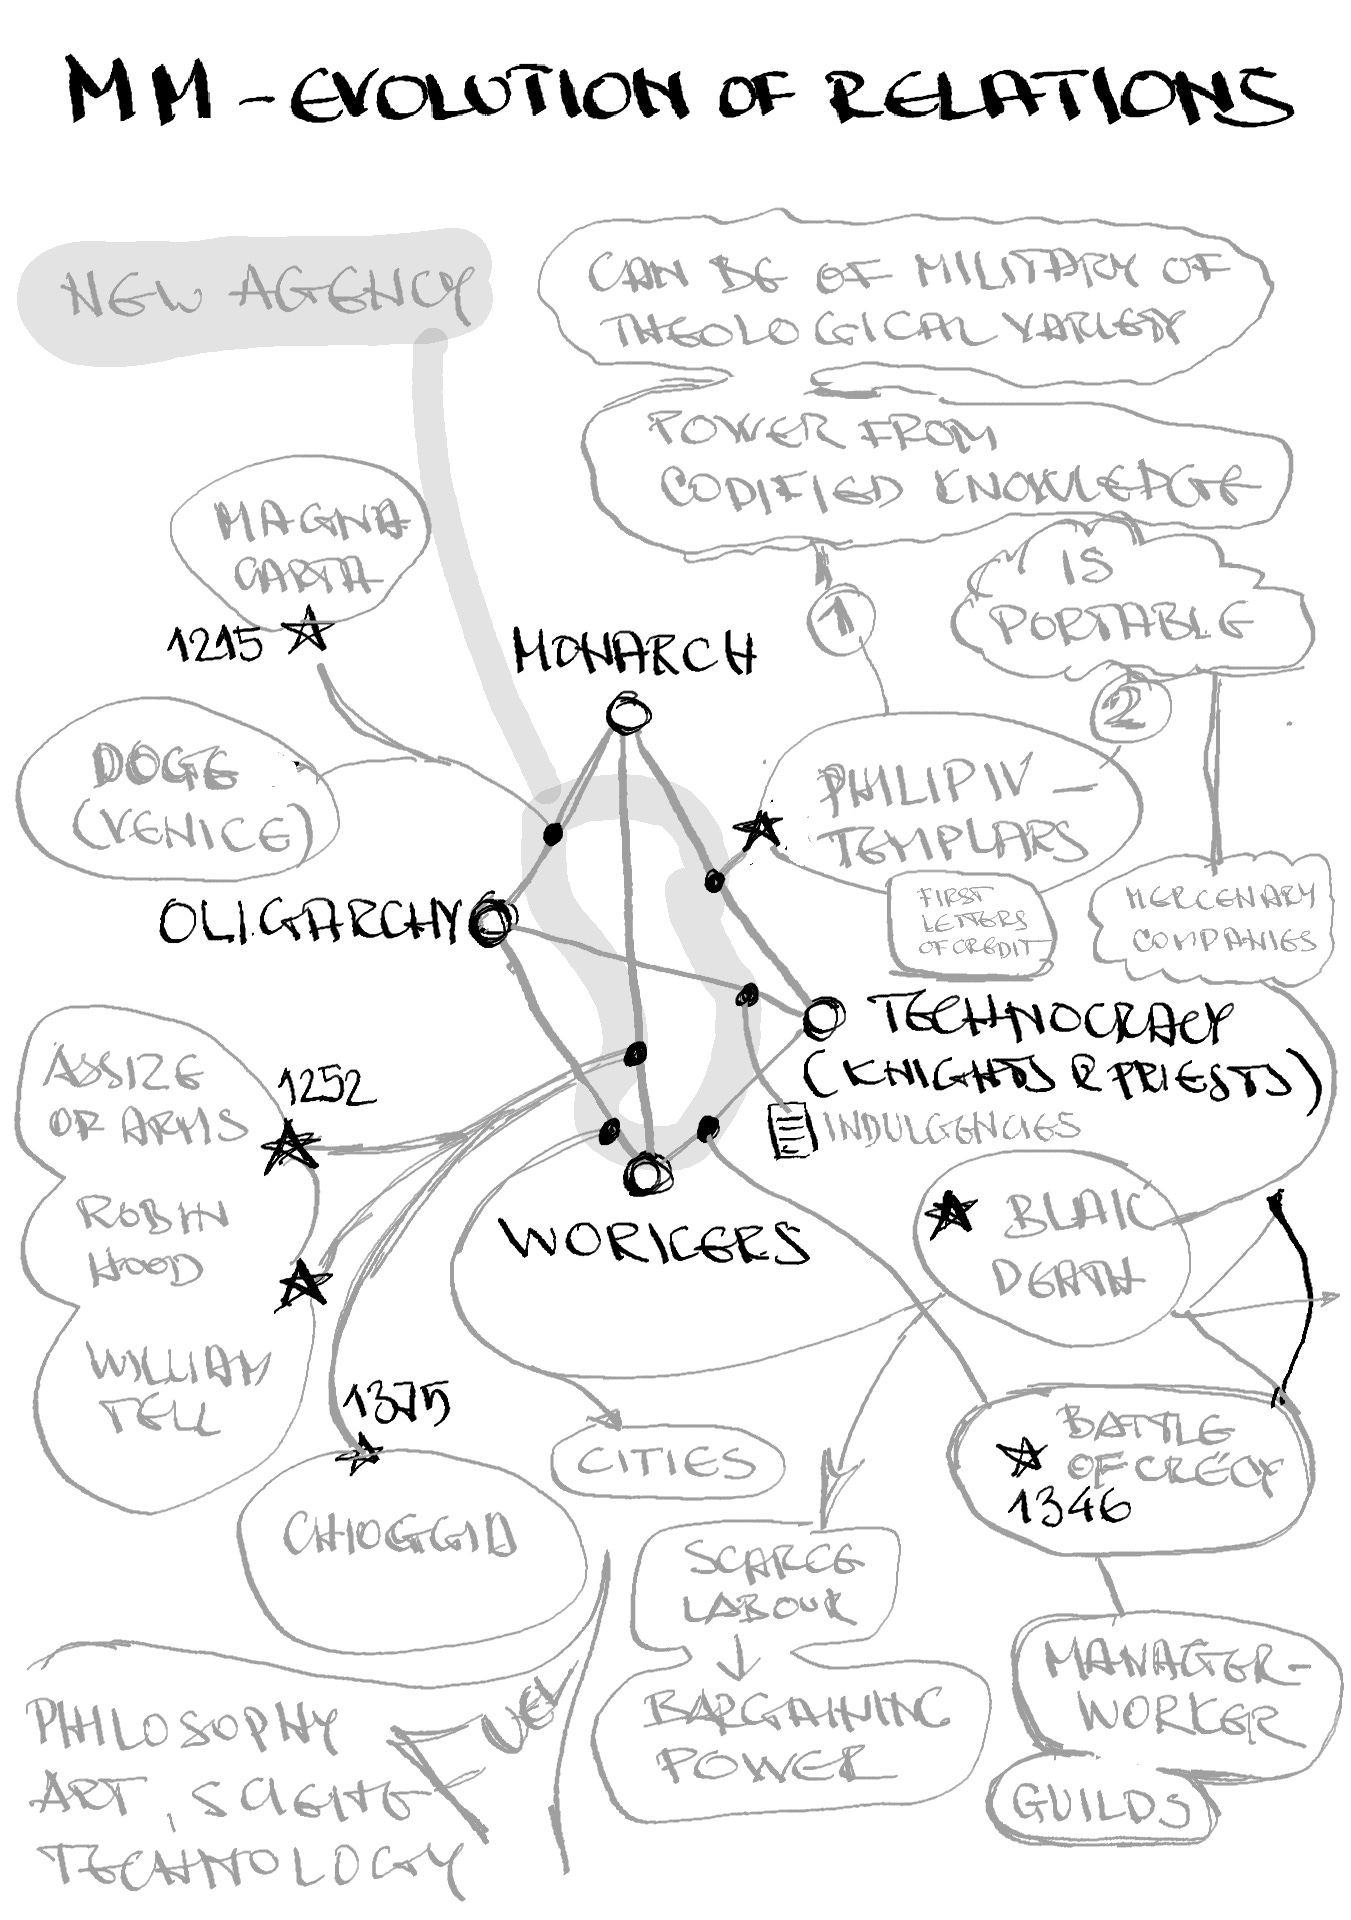 MM - EVOLUTION OF RELATIONS
NEW AGENCY
CAN BE OF MILITARY OF
THEOLOGICAL VARIETY
POWER FROM
CODIFIED KNOWLEDGE
IS
PORTABLE
MAGNA
CARTA
1215
1
2
MONARCH
DOGE
(VENICE)
PHILIP IV -
TEMPLARS
FIRST
LETTERS
OF CREDIT
MERCENARY
COMPANIES
OLIGARCHY
TECHNOCRACY
(KNIGHTS & PRIESTS)
INDULGENCIES
ASSIZE
OF ARMS
1252
ROBIN
HOOD
WILLIAM
TELL
WORKERS
BLAK
DEATH
1375
CHIOGGIA
CITIES
BATTLE
OF CRÉCY
1346
SCARCE
LABOUR
BARGAINING
POWER
MANAGER-
WORKER
GUILDS
PHILOSOPHY
ART, SCIENCE
TECHNOLOGY